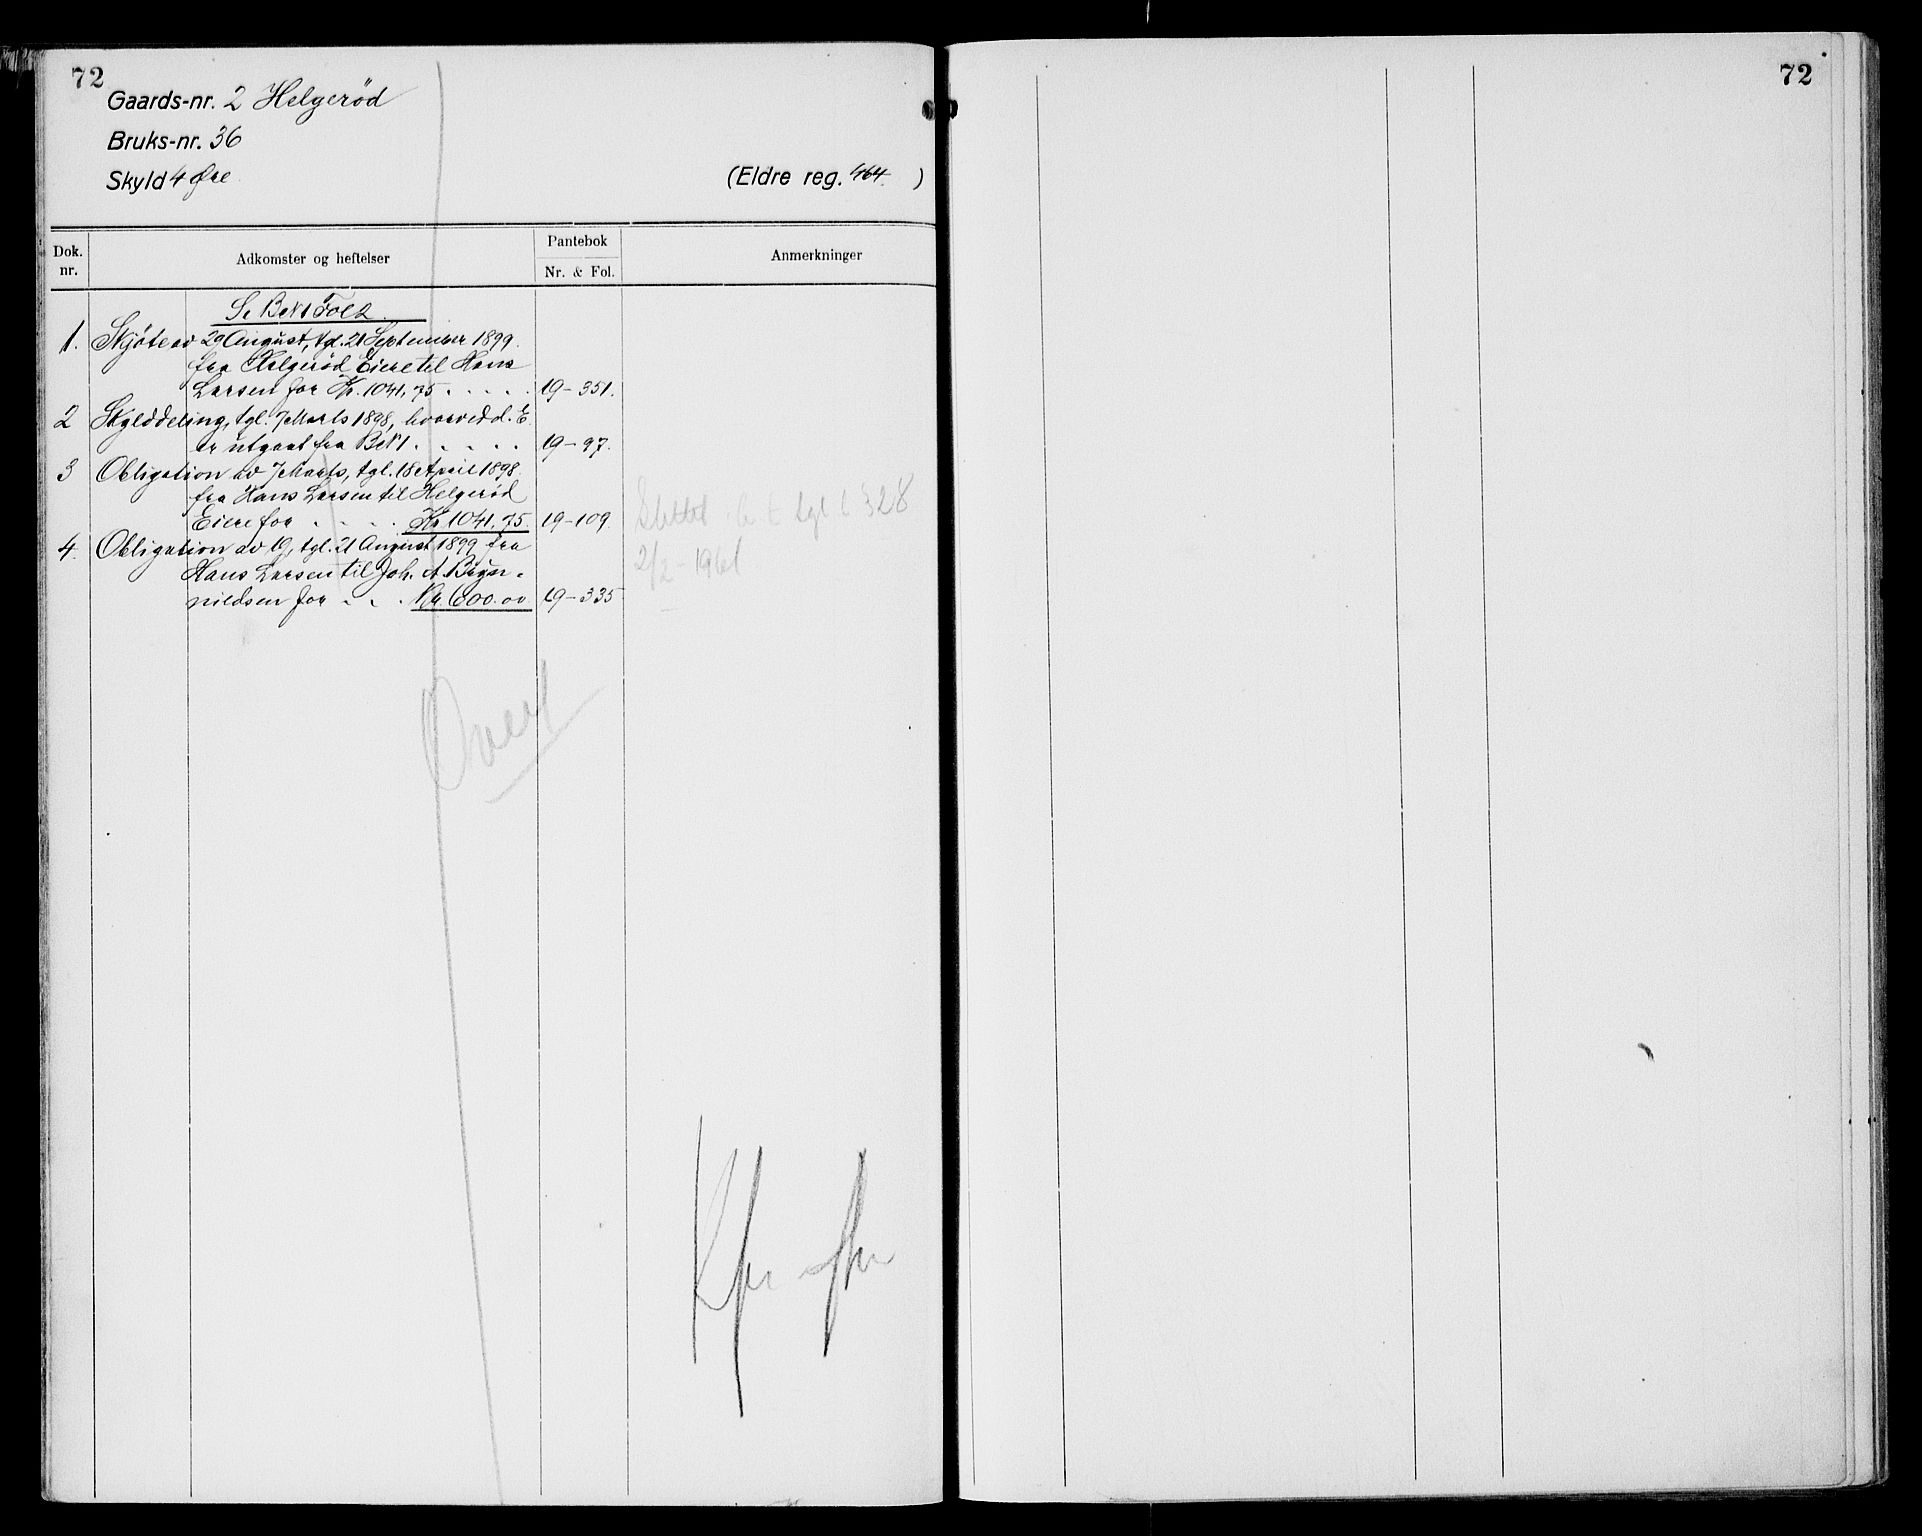 72
Gaards-nr. 2 Helgerød
Bruks-nr. 36
Skyld 4 Øre
(Eldre reg. 464. )
Dok. nr.
Adkomster og heftelser
Pantebok
Nr. & Fol.
Anmerkninger
Se BrN1 Fol 2.
1. Skjøte av 29 August, tgl. 21 September 1899.
fra Helgerød Eiere til Hans
Larsen for Kr. 1041,75 . . . . . 19-351.
2 Skylddeling, tgl. 7 Marts 1898, hvorved d. E.
er utgaat fra BrN1 . . . . . 19-97.
3 Obligation av 7 Marts, tgl. 18 April 1898.
fra Hans Larsen til Helgerød
Eiere for . . . . Kr. 1041,75. 19-109.
Slettet tgl § 28
4. Obligation av 19, tgl. 21 August 1899 fra
2/2-1961
Hans Larsen til Joh. A. Bryn-
nildsen for . . . Kr. 600.00 19-335
72